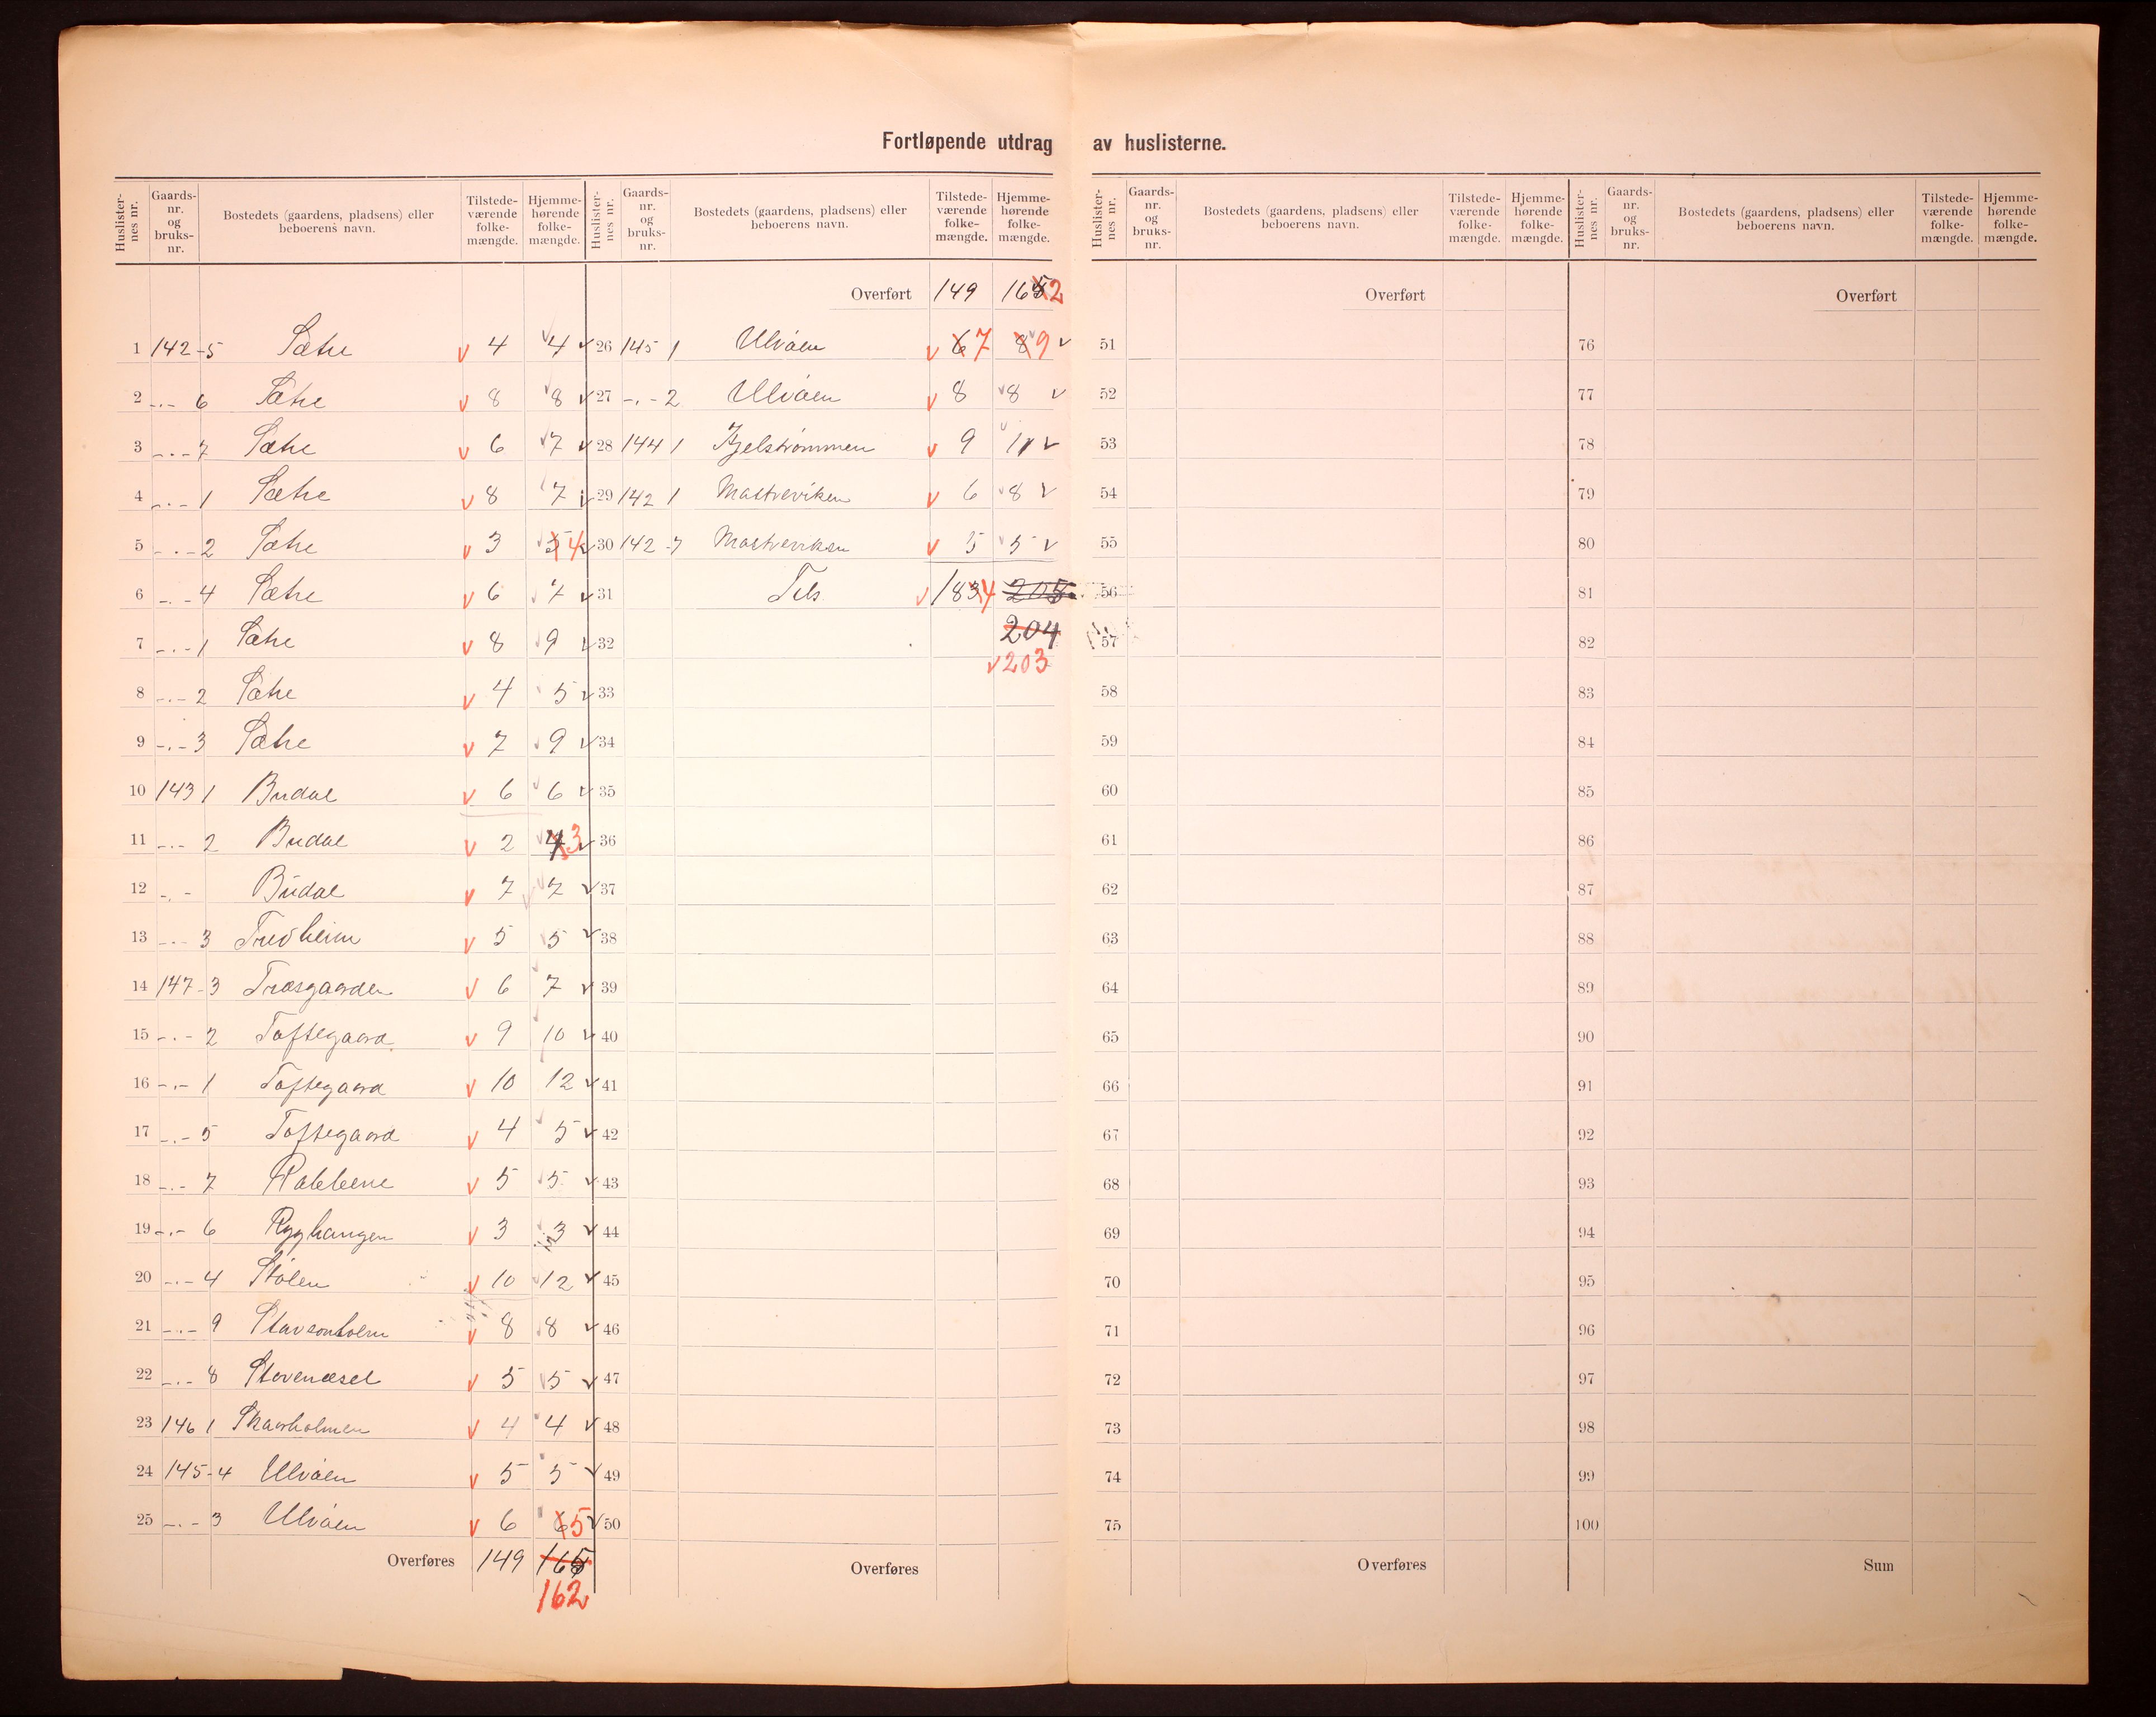 Fortløpende utdrag av huslisterne.
Huslisternes nr. Gaardsnr. og bruksnr. Bostedets (gaardens, pladsens) eller beboerens navn. Tilstedeværende folkemængde. Hjemmehørende folkemængde.
1 142-5 Sætre 4 4
2 -.- 6 Sætre 8 8
3 -.- 7 Sætre 6 7
4 -.- 1 Sætre 8 7
5 -.- 2 Sætre 3 4
6 -.- 4 Sætre 6 7
7 -.- 1 Sætre 8 9
8 -.- 2 Sætre 4 5
9 -.- 3 Sætre 7 9
10 143 1 Budal 6 6
11 -.- 2 Budal 2 4 3
12 -.- Budal 7 7
13 -.- 3 Tredheim 5 5
14 147-3 Træsgaarden 6 7
15 -.- 2 Toftegaard 9 10
16 -.- 1 Toftegaard 10 12
17 -.- 5 Toftegaard 4 5
18 -.- 7 Rabbene 5 5
19 -.- 6 Ryghaugen 3 3
20 -.- 4 Stølen 10 12
21 -.- 9 8 8
22 -.- 8 Stavenæset 5 5
23 146 1 Skaarholmen 4 4
24 145-4 Ulvøen 5 5
25 -.- 3 Ulvøen 6 6 5
Overføres 149 165
162
Huslisternes nr. Gaardsnr. og bruksnr. Bostedets (gaardens, pladsens) eller beboerens navn. Tilstedeværende folkemængde. Hjemmehørende folkemængde.
Overført 149 165 2
26 145 1 Ulvøen 6 7 8 9
27 -.- 2 Ulvøen 8 8
28 144 1 Kjelstrømmen 9 11
29 142 1 Mastreviken 6 8
30 142-7 Mastreviken 5 5
31 Tils 183 4 205
32 204
203
33
34
35
36
37
38
39
40
41
42
43
44
45
46
47
48
49
50
Overføres
Huslisternes nr. Gaardsnr. og bruksnr. Bostedets (gaardens, pladsens) eller beboerens navn. Tilstedeværende folkemængde. Hjemmehørende folkemængde.
Overført
51
52
53
54
55
56
57
58
59
60
61
62
63
64
65
66
67
68
69
70
71
72
73
74
75
Overføres
Huslisternes nr. Gaardsnr. og bruksnr. Bostedets (gaardens, pladsens) eller beboerens navn. Tilstedeværende folkemængde. Hjemmehørende folkemængde.
Overført
76
77
78
79
80
81
82
83
84
85
86
87
88
89
90
91
92
93
94
95
96
97
98
99
100
Sum